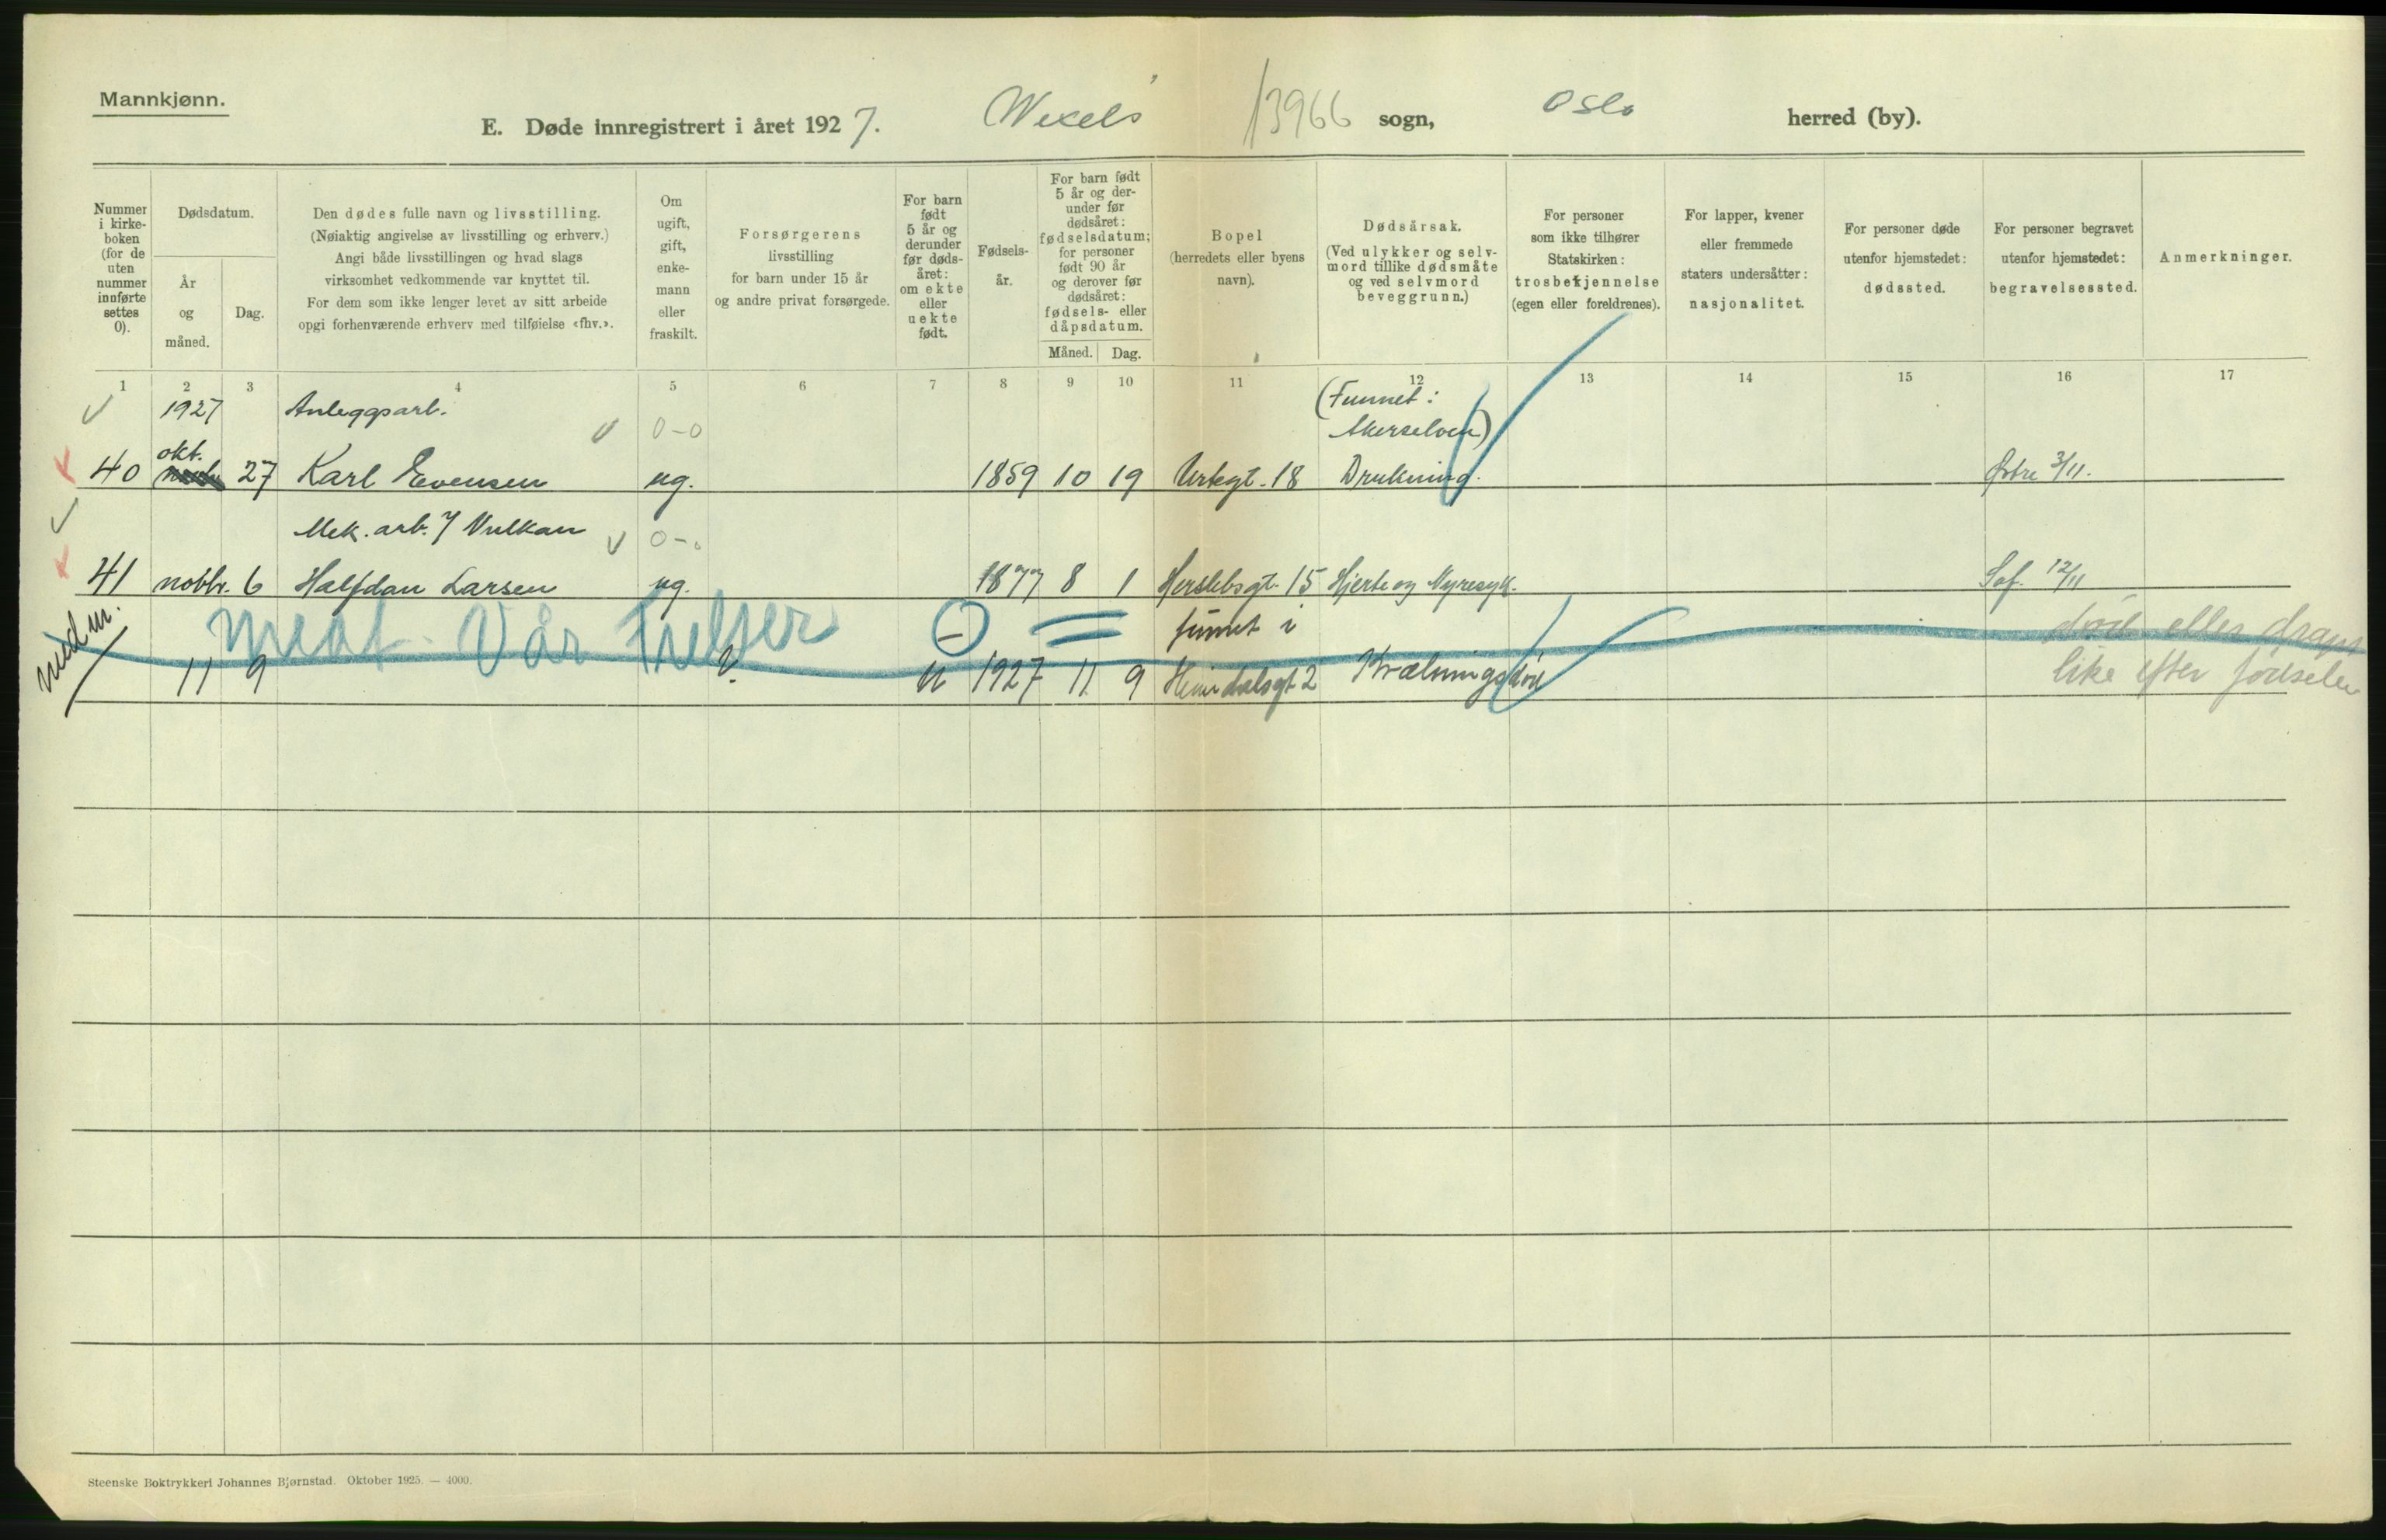 Mannkjønn.
E. Døde innregistrert i året 1927. Wexels 13966 sogn, Oslo herred (by).
Nummer i kirke-boken (for de uten nummer innførte settes 0).
Dødsdatum.
År og måned.
Dag.
Den dødes fulle navn og livsstilling.
(Nøiaktig angivelse av livsstilling og erhverv.)
Angi både livsstillingen og hvad slags
virksomhet vedkommende var knyttet til.
For dem som ikke lenger levet av sitt arbeide
opgi forhenværende erhverv med tilføielse «fhv.».
Om ugift, gift, enke-mann eller fraskilt.
Forsørgerens
livsstilling
for barn under 15 år
og andre privat forsørgede.
For barn født 5 år og derunder før døds-året: om ekte eller uekte født.
Fødsels-år.
For barn født 5 år og der-under før dødsåret: fødselsdatum; for personer født 90 år og derover før dødsåret: fødsels- eller dåpsdatum.
Måned. Dag.
Bopel
(herredets eller byens
navn).
Dødsårsak.
(Ved ulykker og selv-mord tillike dødsmåte og ved selvmord beveggrunn.)
For personer
som ikke tilhører
Statskirken:
trosbekjennelse
(egen eller foreldrenes).
For lapper, kvener
eller fremmede
staters undersåtter:
nasjonalitet.
For personer døde
utenfor hjemstedet:
dødssted.
For personer begravet
utenfor hjemstedet:
begravelsessted.
Anmerkninger.
1 2 3 4 5 6 7 8 9 10 11 12 13 14 15 16 17
1927 Anleggsarb. 0-0 (Funnet: Akerselven)
40 okt. 27 Karl Evensen ug. 1859 10 19 Urtegt. 18 Drukning. Østre 3/11.
Mek. arb. v/ Vulkan 0-0
41 novbr. 6 Halfdan Larsen ug. 1877 8 1 Herslebsgt. 15 Hjerte og Nyresyk. Sof. 12/11
med m. Vår Frelser funnet i død eller drept
11 9 ? u 1927 11 9 Heimdalsgt 2 Kvælningsdød like efter fødselen
Steenske Boktrykkeri Johannes Bjørnstad. Oktober 1925. — 4000.